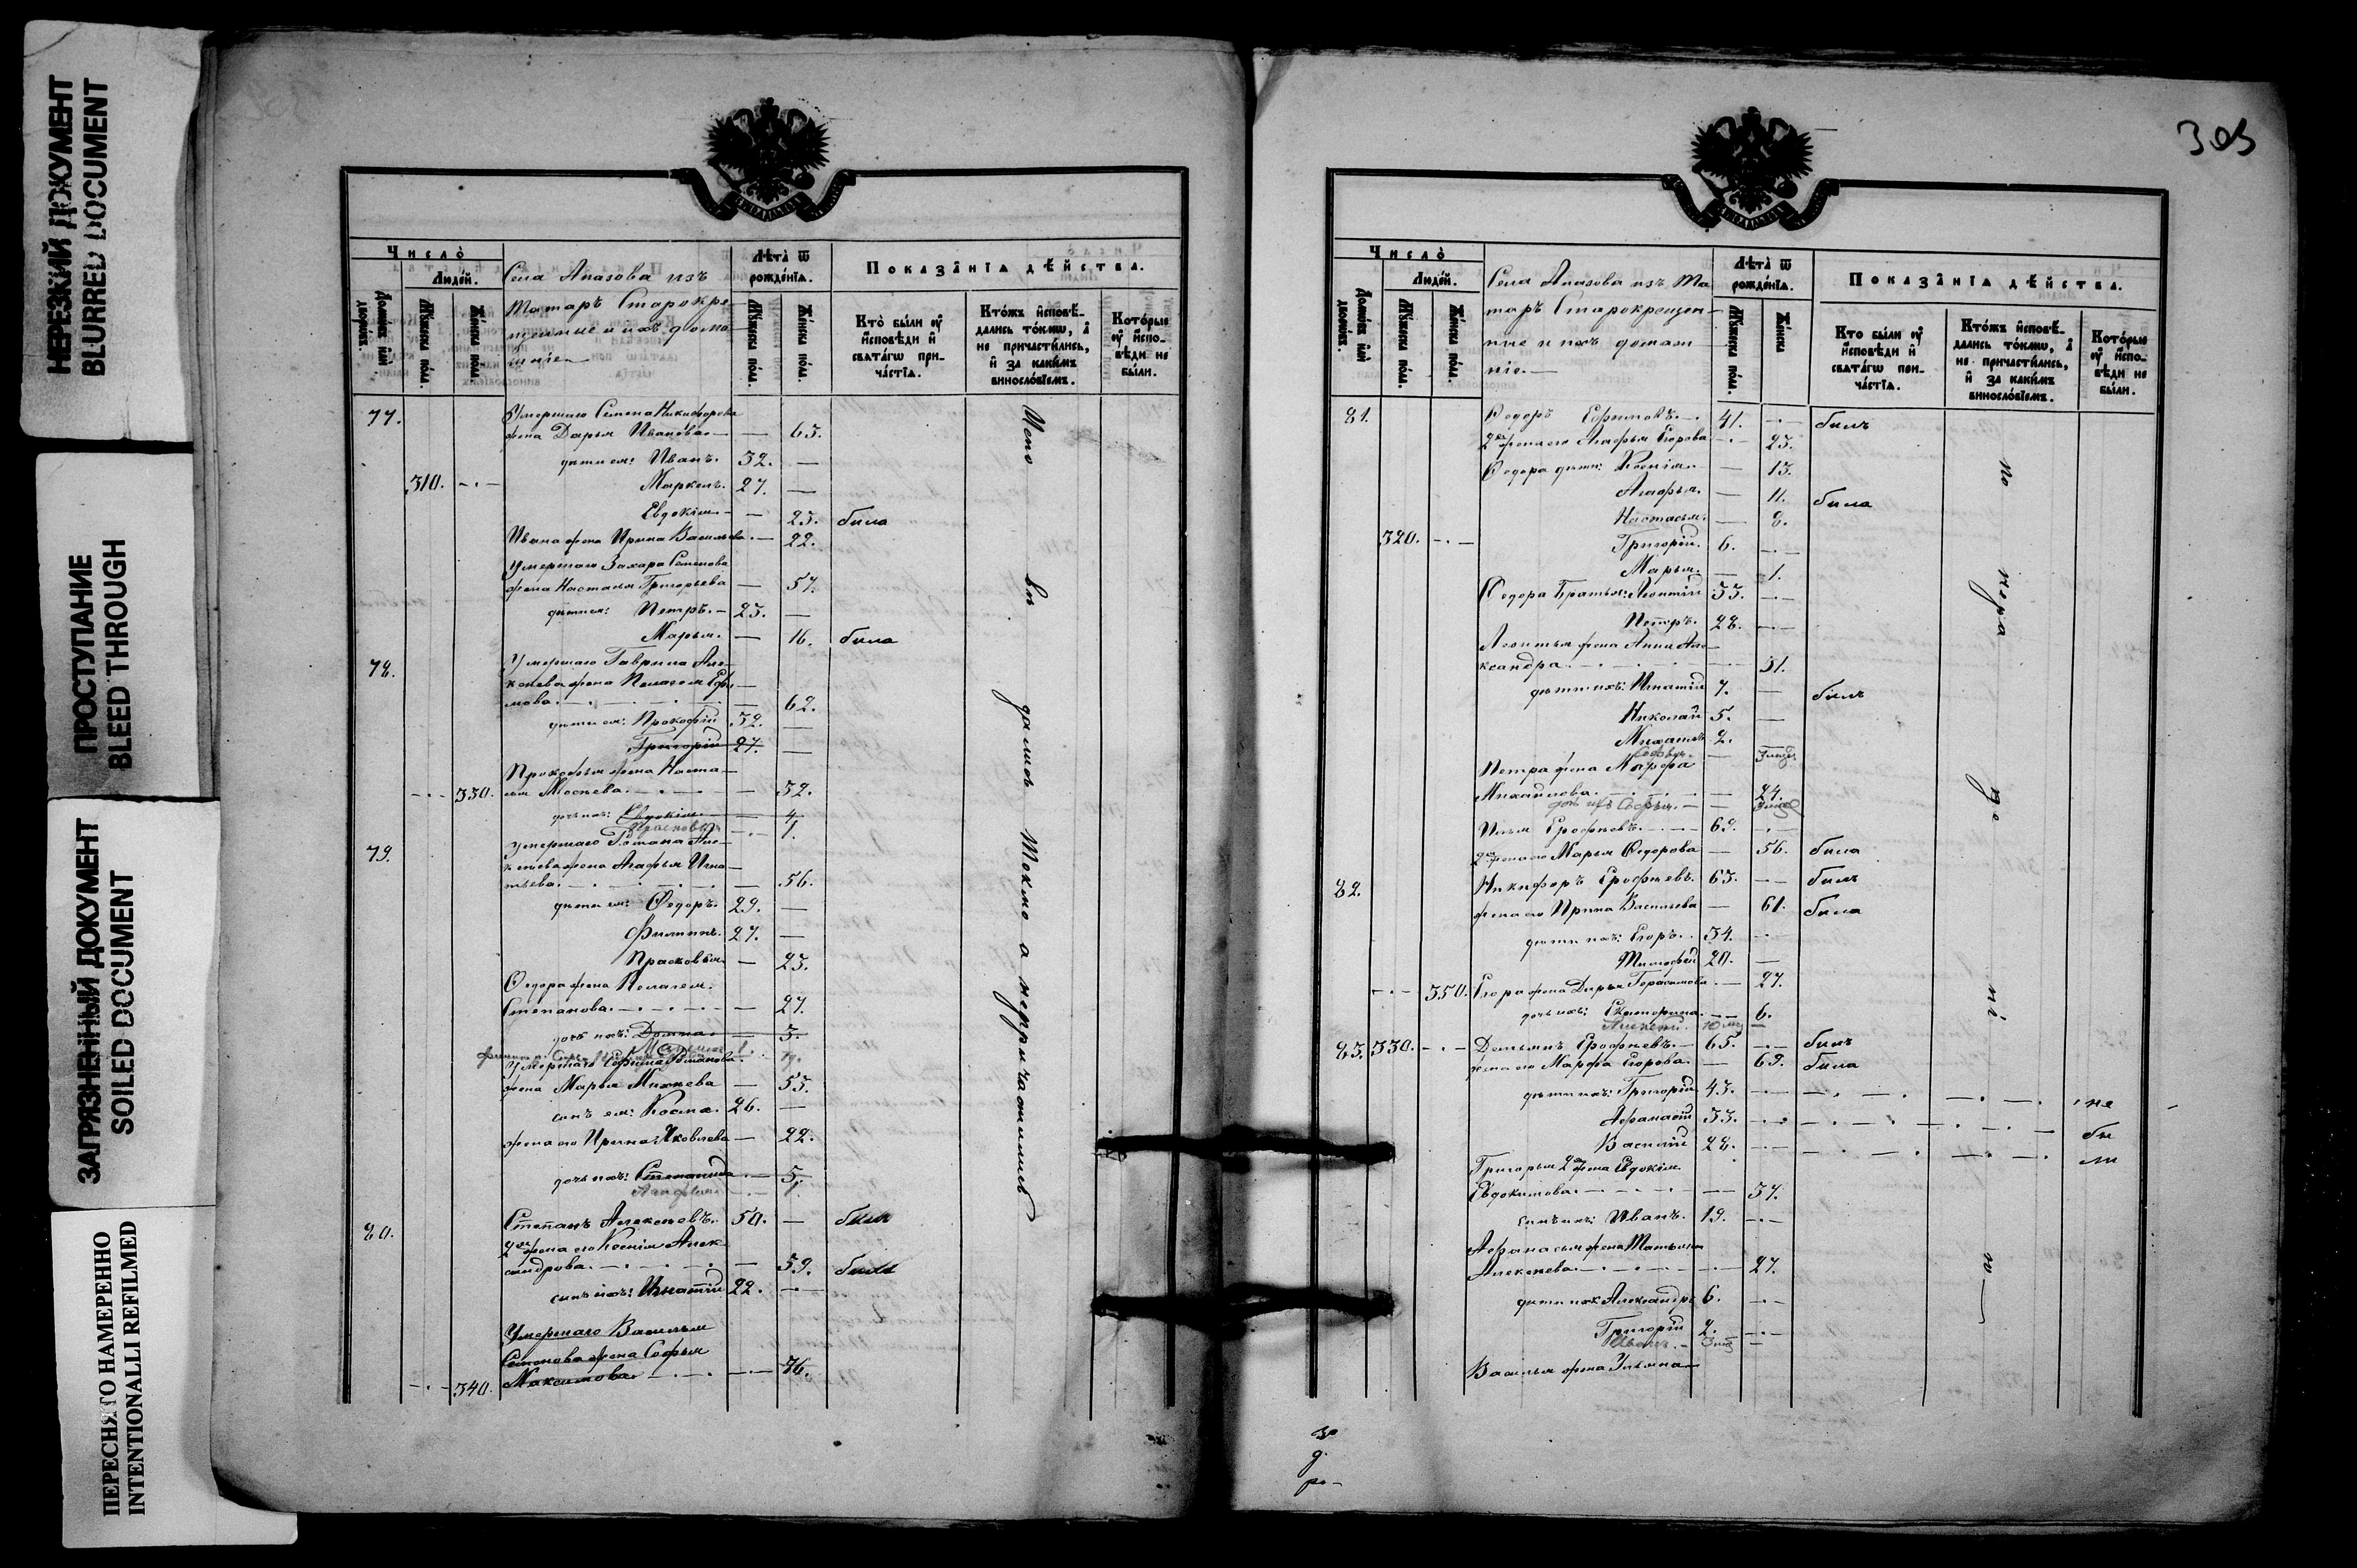 НЕРЕЗКИЙ ДОКУМЕНТ
BLURRED DOCUMENT
ПРОСТУПАНИЕ
BLEED THROUGH
ЗАГРЯЗНЕННЫЙ ДОКУМЕНТ
SOILED DOCUMENT
ПЕРЕСНЯТО НАМЕРЕННО
INTENTIONALLI REFILMED
Число̀
Людей.
Домѡвъ или дворѡвъ.
Мꙋжеска пола.
Женска пола.
Села Апазова изъ
Татаръ Старокре-
щеные и ихъ дома-
шніе
Лѣта ѿ рожденїѧ.
Мꙋжеска пола.
Женска пола.
Показанїѧ дѣйства.
Кто были оу исповѣди и свѧтагѡ причастїѧ.
Ктожъ исповѣдались токмѡ, а не причастились, и за какимъ винословїемъ.
Которые оу исповѣди не были.
77. Умершаго Семена Никифорова
жена Дарья Иванова — 65.
дѣти ея: Иванъ. 32. —
310. Маркелъ. 27. —
Евдокія — 25. была
Ивана жена Ирина Васильева — 22.
Умершаго Захара Семенова
жена Настасья Григорьева — 57.
дѣти ея: Петръ. 25. —
Марья. — 16. была
78. Умершаго Гаврила Але-
ксѣева жена Пелагея Ефи-
мова. — 62.
дѣти ея: Прокофій 32. —
Григорій 27. —
Прокофья жена Наста-
330. сья Мосѣева. — 32.
дочь ихъ: Евдокія — 4
Прасковья 1.
79. Умершаго Романа Але-
ксѣева жена Агафья Игна-
тьева. — 56.
дѣти ея: Ѳедоръ. 29. —
Филиппъ. 27. —
Прасковья. — 25.
Ѳедора жена Пелагея
Степанова. — 27.
дочь ихъ: Домна — 3.
Умершаго Ефима Романова
жена Марья Михеева — 55.
сынъ ея: Косма. 26. —
жена его Ирина Яковлева — 22.
дочь ихъ: Степанида — 5
80. Степанъ Алексѣевъ. 50. — былъ
2я жена его Ксенія Алек-
сандрова. — 59. была
сынъ ихъ: Игнатій 22. —
Умершаго Василья
Семенова жена Софья
340. Максимова — 76.
Исповѣдались токмо а непричастились
305
Число̀
Людей.
Домѡвъ или дворѡвъ.
Мꙋжеска пола.
Женска пола.
Села Апазова изъ Та
таръ Старокрещен-
ные и ихъ домаш
ніе.
Лѣта ѿ рожденїѧ.
Мꙋжеска пола.
Женска
Показанїѧ дѣйства.
Кто были оу исповѣди и свѧтагѡ причастїѧ.
Ктожъ исповѣдались токмѡ, а не причастились, и за какимъ винословїемъ.
Которые оу исповѣди не были.
81. Ѳедоръ Ефимовъ. 41. былъ
2я жена его Агафья Егорова 25.
Ѳедора дѣти: Ксенія — 13.
Агафья. — 11. была
Настасья. — 8.
320. Григорій. 6.
Марья. — 1.
Ѳедора братья: Леонтій 35.
Петръ. 28.
Леонтья жена Анна Але-
ксандра. 31.
дѣти ихъ: Игнатій 7. — былъ
Николай 5. —
Михаилъ 2.
Петра жена Марфа
Михайлова. — 24.
дочь ихъ Софья.
Илья Ерофѣевъ. 69.
2я жена его Марья Ѳедорова — 56. была
82. Никифоръ Ерофѣевъ. 65. былъ
жена его Ирина Васильева — 61. была
дѣти ихъ: Егоръ. 34.
Тимофей 20. —
350. Егора жена Дарья Герасимова — 27.
дочь ихъ: Екатерина. 6.
Алексѣй. 10 мѣс
83. 330. Демьянъ Ерофѣевъ. 65. былъ
жена его Марфа Егорова. — 69. была
дѣти ихъ: Григорій 43. не
Афанасій 33. бы
Василій 28. ли
Григорья 2я жена Евдокія
Евдокимова. 37.
сынъ ихъ: Иванъ. 19.
Афанасья жена Татьяна
Алексѣева. 27.
дѣти ихъ: Александръ 6.
Григорій 2.
Иванъ.
Василья жена Ульяна
по нера дѣ ні ю